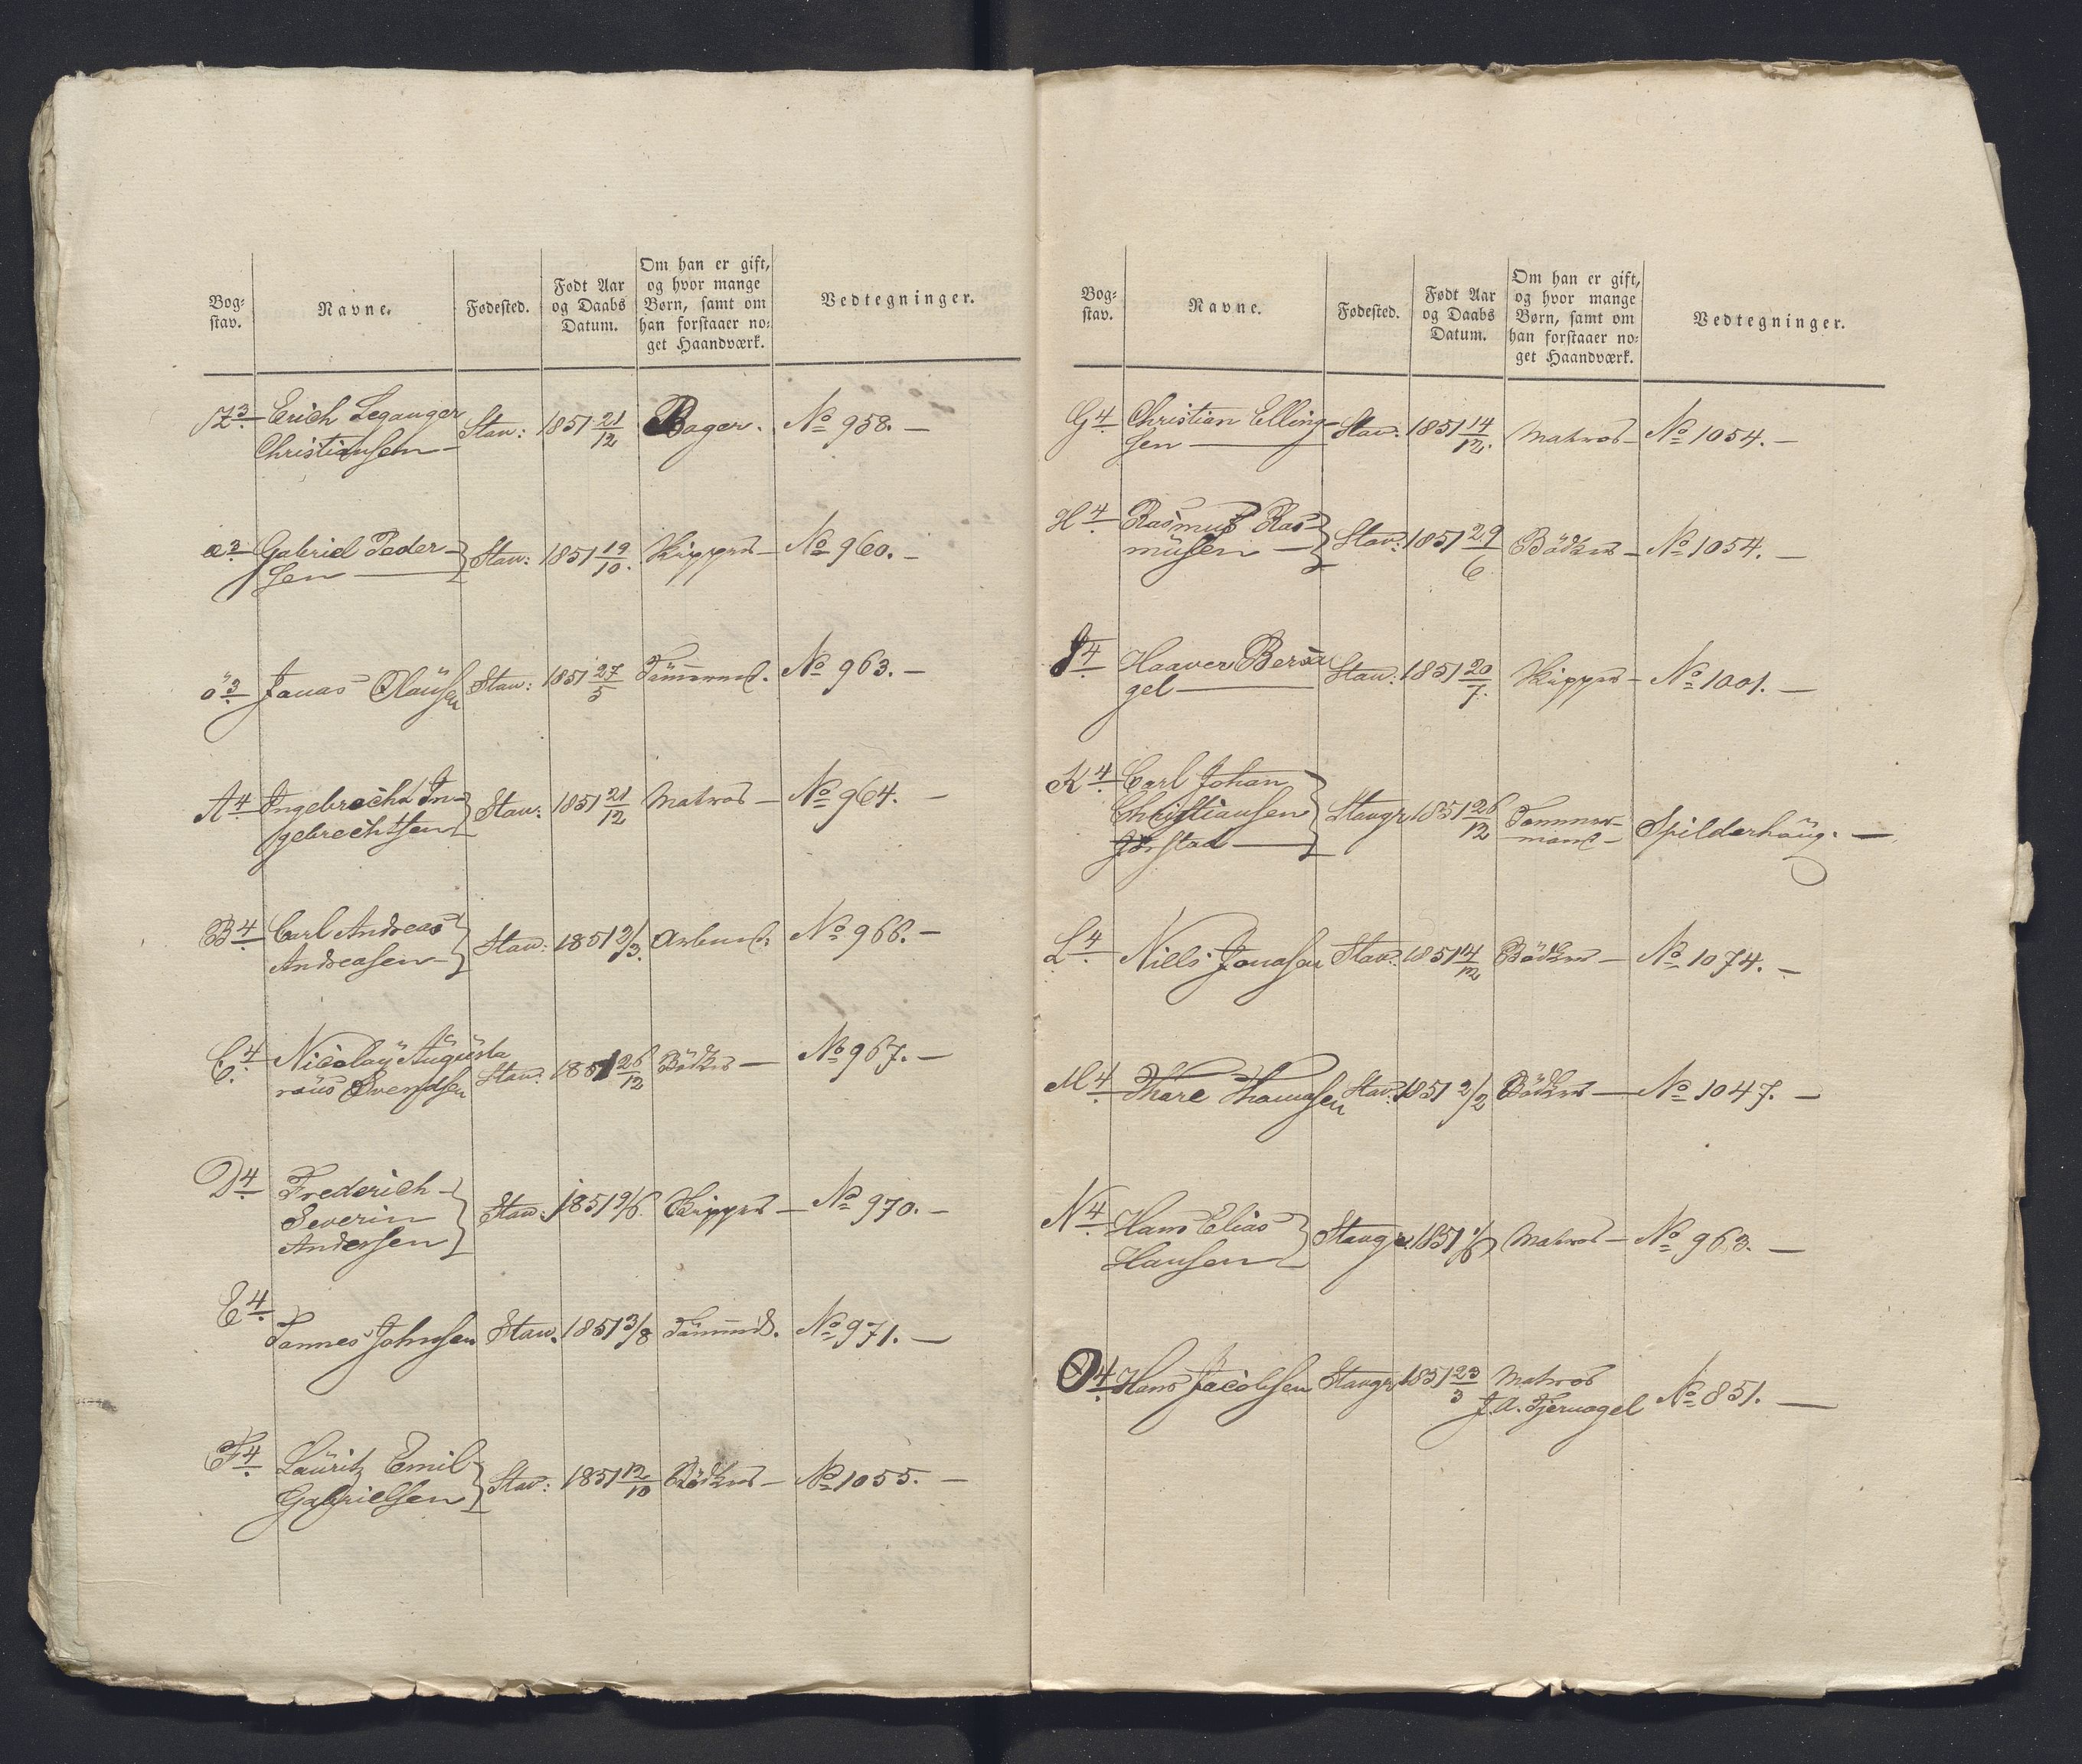 Bog-
stav.
Navne.
Fødested.
Født Aar
og Daabs
Datum.
Om han er gift,
og hvor mange
Børn, samt om
han forstaaer no-
get Haandværk.
Vedtegninger.
Z3. Erich Leganger
Christiansen Stav: 1851 21/12 Bager. No 958.
æ3. Gabriel Peder-
sen Stav: 1851 19/10. Skipper No 960.
ö3. Jonas Olaüsen Stav: 1851 27/5 Tömmermd. No 963.
A4. Ingebrecht In-
gebrechtsen Stav: 1851 21/12 Matros No 964.
B4. Carl Andreas
Andreasen Stav: 1851 2/3. Arbmd. No 966.
C4. Nicolaÿ Aügüsta
Svendsen Stav: 1851 26/12 Bödker No 967.
D4. Frederich
Severin
Andersen Stav. 1851 9/6. Skipper No 970.
E4.
Tönnes Johnsen Stav. 1851 3/8 Tömmd. No 971.
F4. Laüritz Emil
Gabrielsen Stav: 1851 12/10 Bödker No 1055.
Bog-
stav.
Navne.
Fødested.
Født Aar
og Daabs
Datum.
Om han er gift,
og hvor mange
Børn, samt om
han forstaaer no-
get Haandværk.
Vedtegninger.
G4. Christian Elling-
sen Stav. 1851 14/12. Matros No 1054.
H4. Rasmus Ras-
müsen Stav: 1851 29/6 Bödker No 1054.
J4. Haaver Bersa
gel Stav. 1851 20/7. Skipper No 1001.
K4. Carl Johan
Christiansen
Jörstad Stavgr. 1851 26/12 Tømmer-
mand Spilderhaüg.
L4. Niels Jonasen Stav. 1851 4/12 Bödker No 1074.
M4. Thore Thomasen Stav. 1851 2/2 Bödker No 1047.
N4. Hans Elias
Hansen Stavgr. 1851 1/6 Matros No 963.
O4. Hans Jacobsen Stavgr. 1851 23/3 Matros
J.A. Tjervagel No 851.